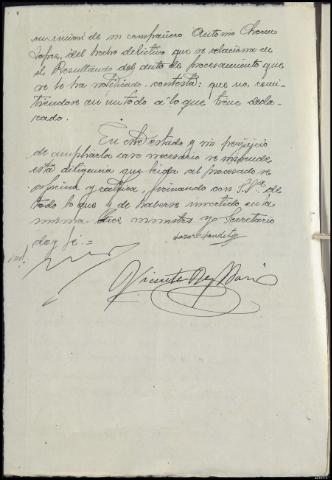 en unión de su compañero Antonio Chover
, del hecho delictivo que se relaciona en
el Resultando del auto de procesamiento que
se le ha notificado, contesta: que no, remi-
tiéndose en un todo a lo que tiene decla-
rado.
En este estado y sin perjuicio
de ampliarla caso necesario se suspende
esta diligencia que leída al procesado se
afirma y ratifica, firmando con S.Sª. de
todo lo que y de haberse invertido en la
misma diez minutos yo Secretario
doy fe.=
Vicente